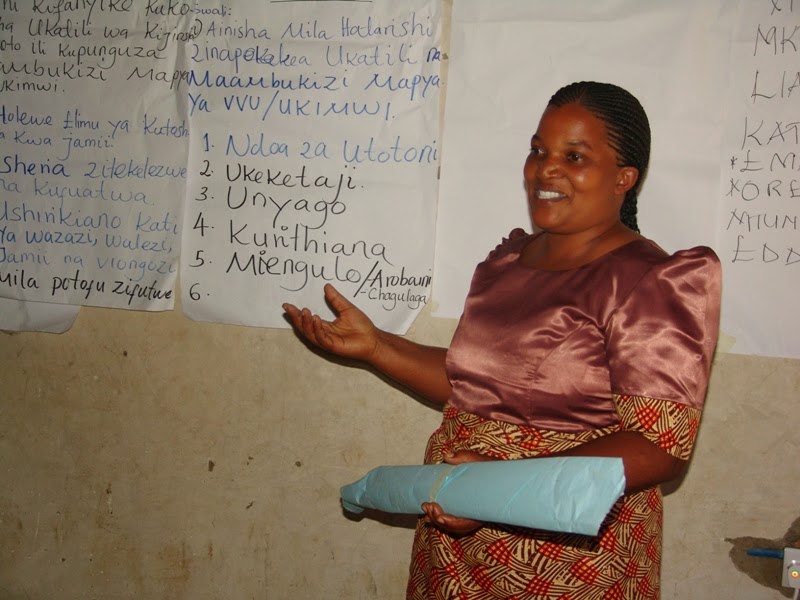 Kifanyike kuko
Ukatili wa Kijinsi
ili kupunguza
ambukizi Mapya
UKIMWI.
Elimu ya Kutosh
Kwa jamii.
Sheria zitekelezwe
na kufuatwa
Ushirikiano Kati
Ya wazazi, walezi,
Jamii na viongozi
Mila potofu zifutwe
Swali:
Ainisha Mila Hatarishi
Zinapelekea Ukatili na
Maambukizi Mapya
Ya VVU/UKIMWI.
1. Ndoa za Utotoni
2. Ukeketaji.
3. Unyago
4. Kurithiana
5. Miengulo/Arobaini
- Chagulaga
6.
MK
LIA
KAT
*EM
XORE
EDD